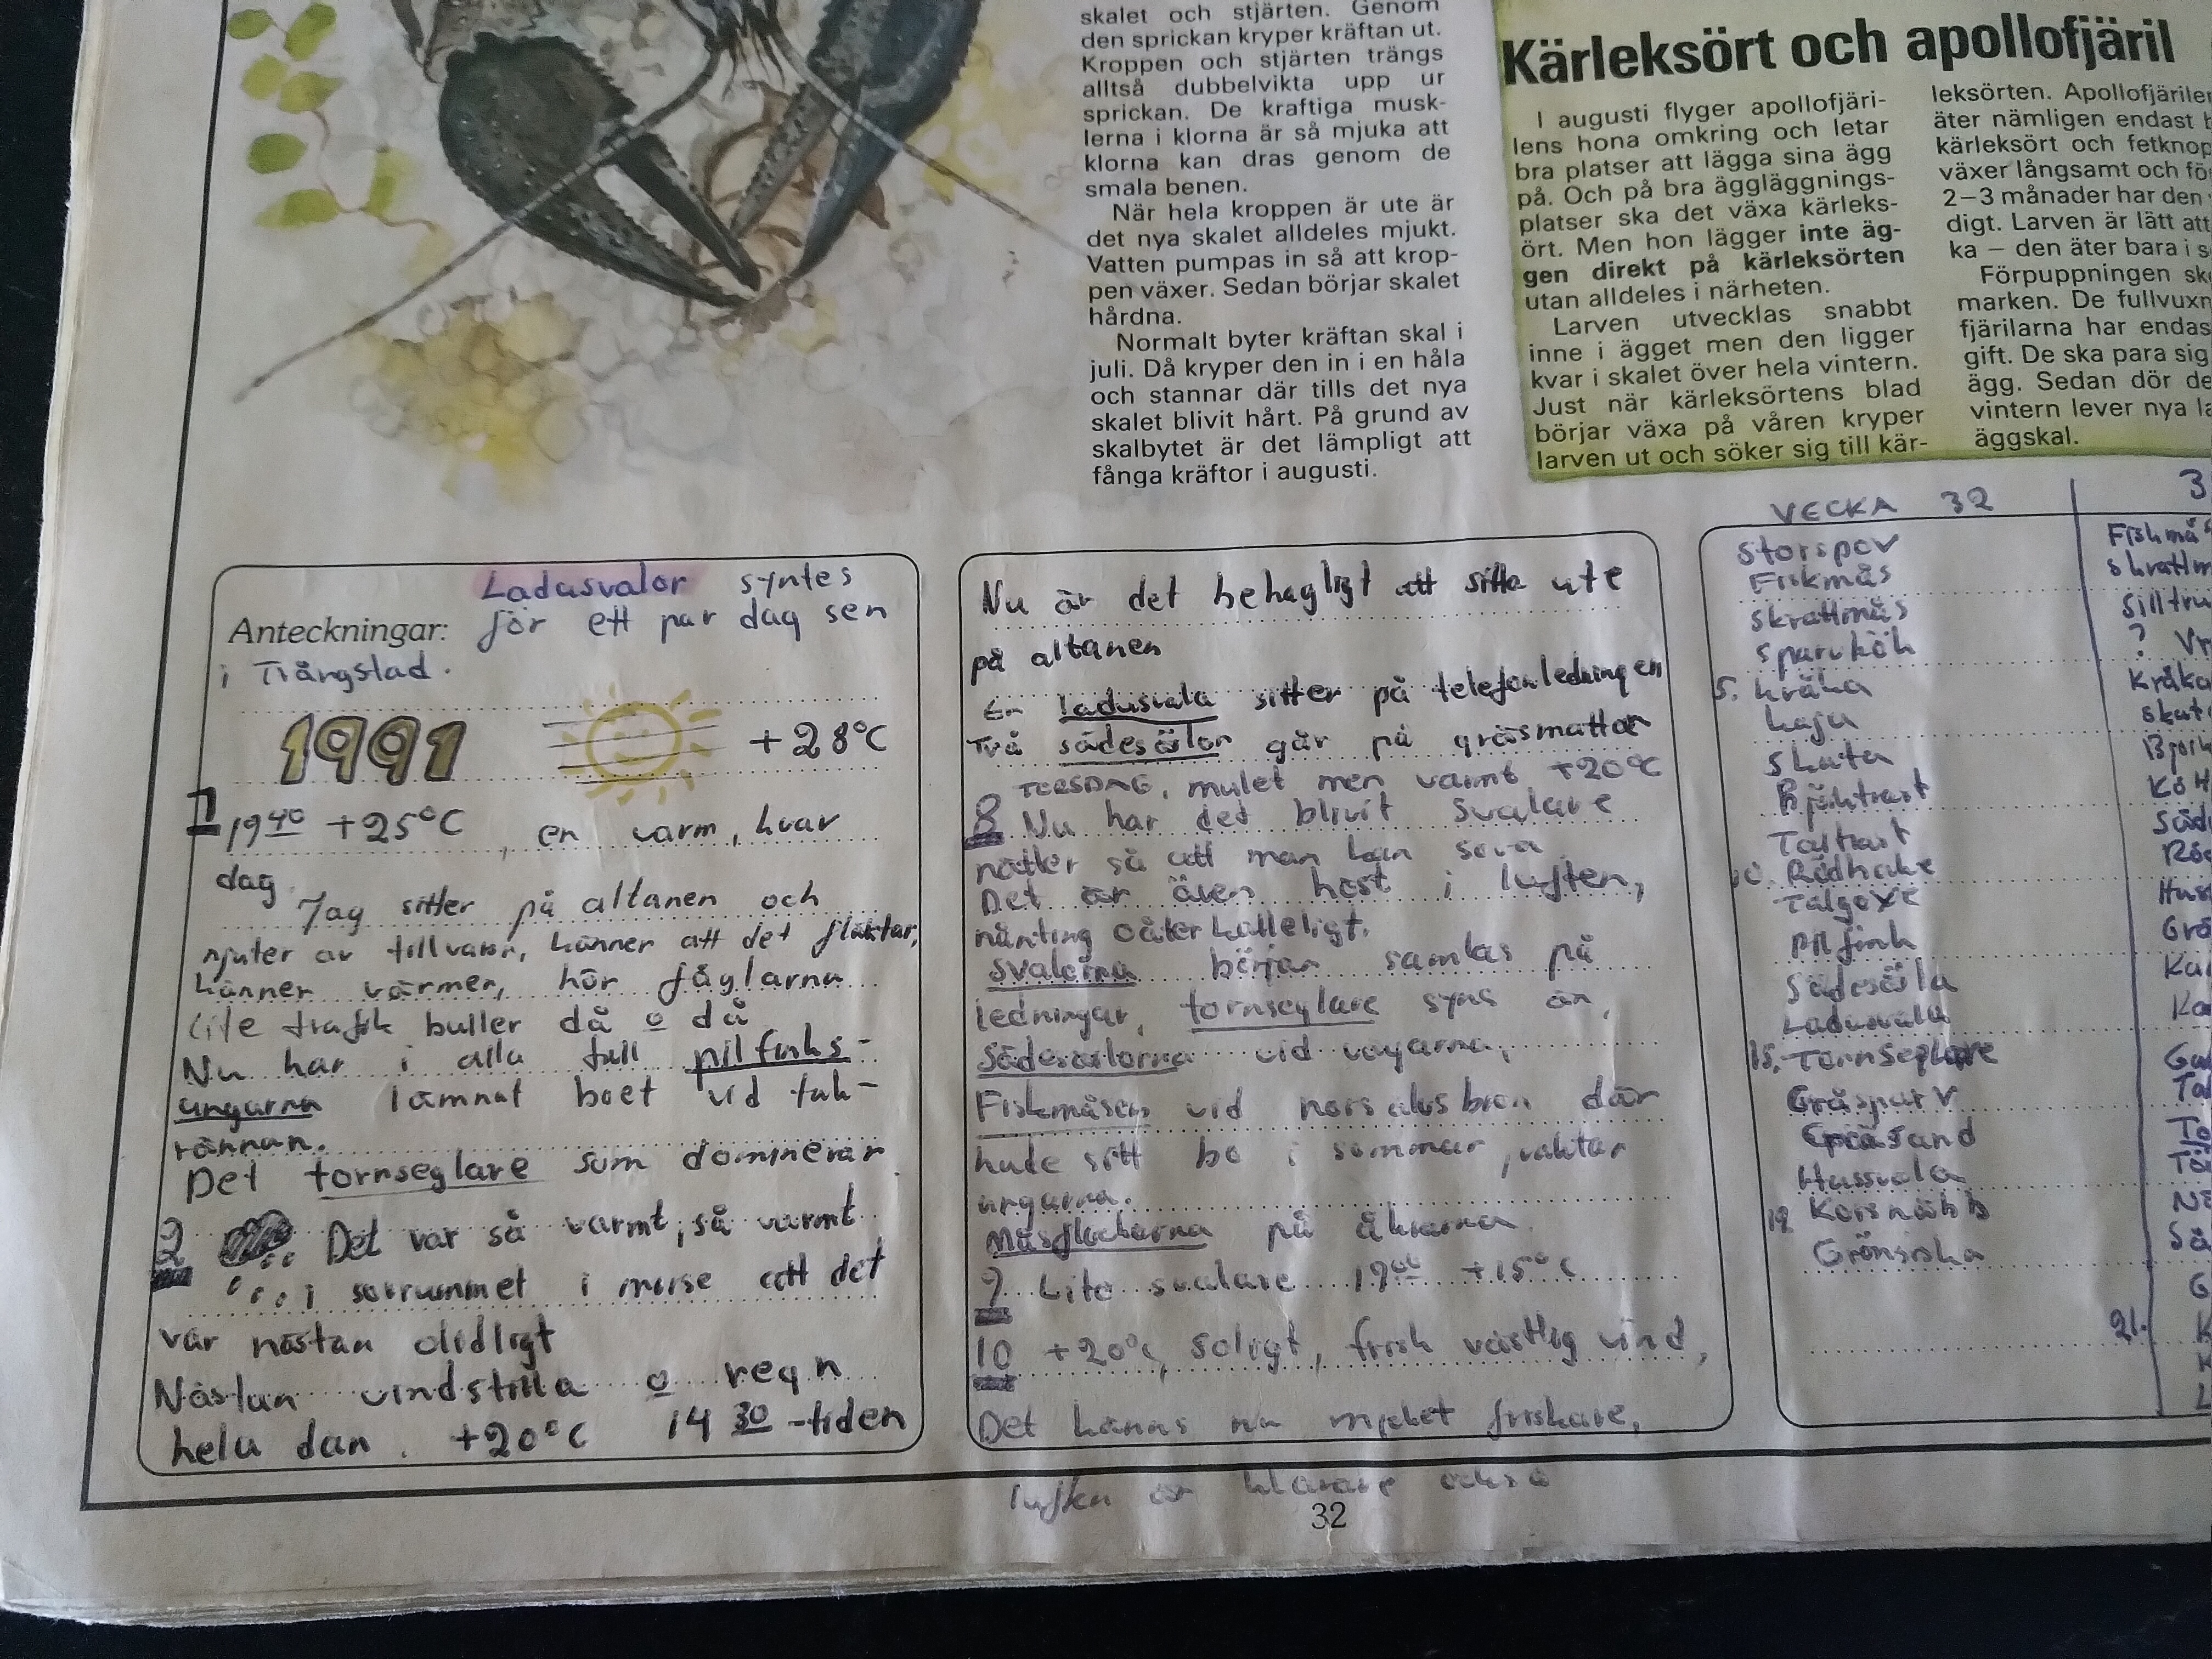 skalet och stjärten. Genom
den sprickan kryper kräftan ut.
Kroppen och stjärten trängs
alltså dubbelvikta upp ur
sprickan. De kraftiga musk-
lerna i klorna är så mjuka att
klorna kan dras genom de
smala benen.
När hela kroppen är ute är
det nya skalet alldeles mjukt.
Vatten pumpas in så att krop-
pen växer. Sedan börjar skalet
hårdna.
Normalt byter kräftan skal i
juli. Då kryper den in i en håla
och stannar där tills det nya
skalet blivit hårt. På grund av
skalbytet är det lämpligt att
fånga kräftor i augusti.
Kärleksört och apollofjäril
I augusti flyger apollofjäri-
lens hona omkring och letar
bra platser att lägga sina ägg
på. Och på bra äggläggnings-
platser ska det växa kärleks-
ört. Men hon lägger inte äg-
gen direkt på kärleksörten
utan alldeles i närheten.
Larven utvecklas snabbt
inne i ägget men den ligger
kvar i skalet över hela vintern.
Just när kärleksörtens blad
börjar växa på våren kryper
larven ut och söker sig till kär-
leksörten. Apollofjärile
äter nämligen endast
kärleksört och fetknop
växer långsamt och fö
2–3 månader har den
digt. Larven är lätt att
ka – den äter bara i s
Förpuppningen sk
marken. De fullvuxn
fjärilarna har endas
gift. De ska para sig
ägg. Sedan dör de
vintern lever nya la
äggskal.
Ladusvalor syntes
Anteckningar: för ett par dag sen
i Trångstad.
1991 +28°C
1 19 40 +25°C, en varm, kvav
dag.
Jag sitter på altanen och
njuter av tillvaron, känner att det fläktar,
känner värmen, hör fåglarna
lite trafik buller då o då
Nu har i alla fall pilfinks-
ungarna lämnat boet vid tak-
rännan.
Det tornseglare som dominerar.
2 Det var så varmt, så varmt
i sovrummet i morse att det
var nästan olidligt
Nästan vindstilla o regn
hela dan. +20°C 14 30 -tiden
Nu är det behagligt att sitta ute
på altanen
En ladusvala sitter på telefonledningen
Två sädesärlor går på gräsmattan
8 TORSDAG, mulet men varmt +20°C
Nu har det blivit svalare
nätter så att man kan sova
Det är även höst i luften,
nånting oåterkalleligt.
Svalorna börjar samlas på
ledningar, tornseglare syns än,
Sädesärlorna vid vägarna,
Fiskmåsen vid norsaksbron där
hade sitt bo i sommar, vaktar
ungarna.
Måsflockarna på åkrarna
9 Lite svalare 19 00 +15°C
10 +20°C, soligt, frisk västlig vind,
Det känns nu mycket friskare,
luften är klarare också
VECKA 32
Storspov
Fiskmås
Skrattmås
Sparvhök
5. Kråka
Kaja
Skata
Björktrast
Taltrast
10. Rödhake
Talgoxe
Pilfink
Sädesärla
Ladusvala
15. Tornseglare
Gråsparv
Gräsand
Hussvala
19 Korsnäbb
Grönsiska
3
Fiskmå
Skrattm
Silltru
?
Kråka
Skat
Björk
Säd
Rö
Hus
Grö
Ka
Ka
21.
32